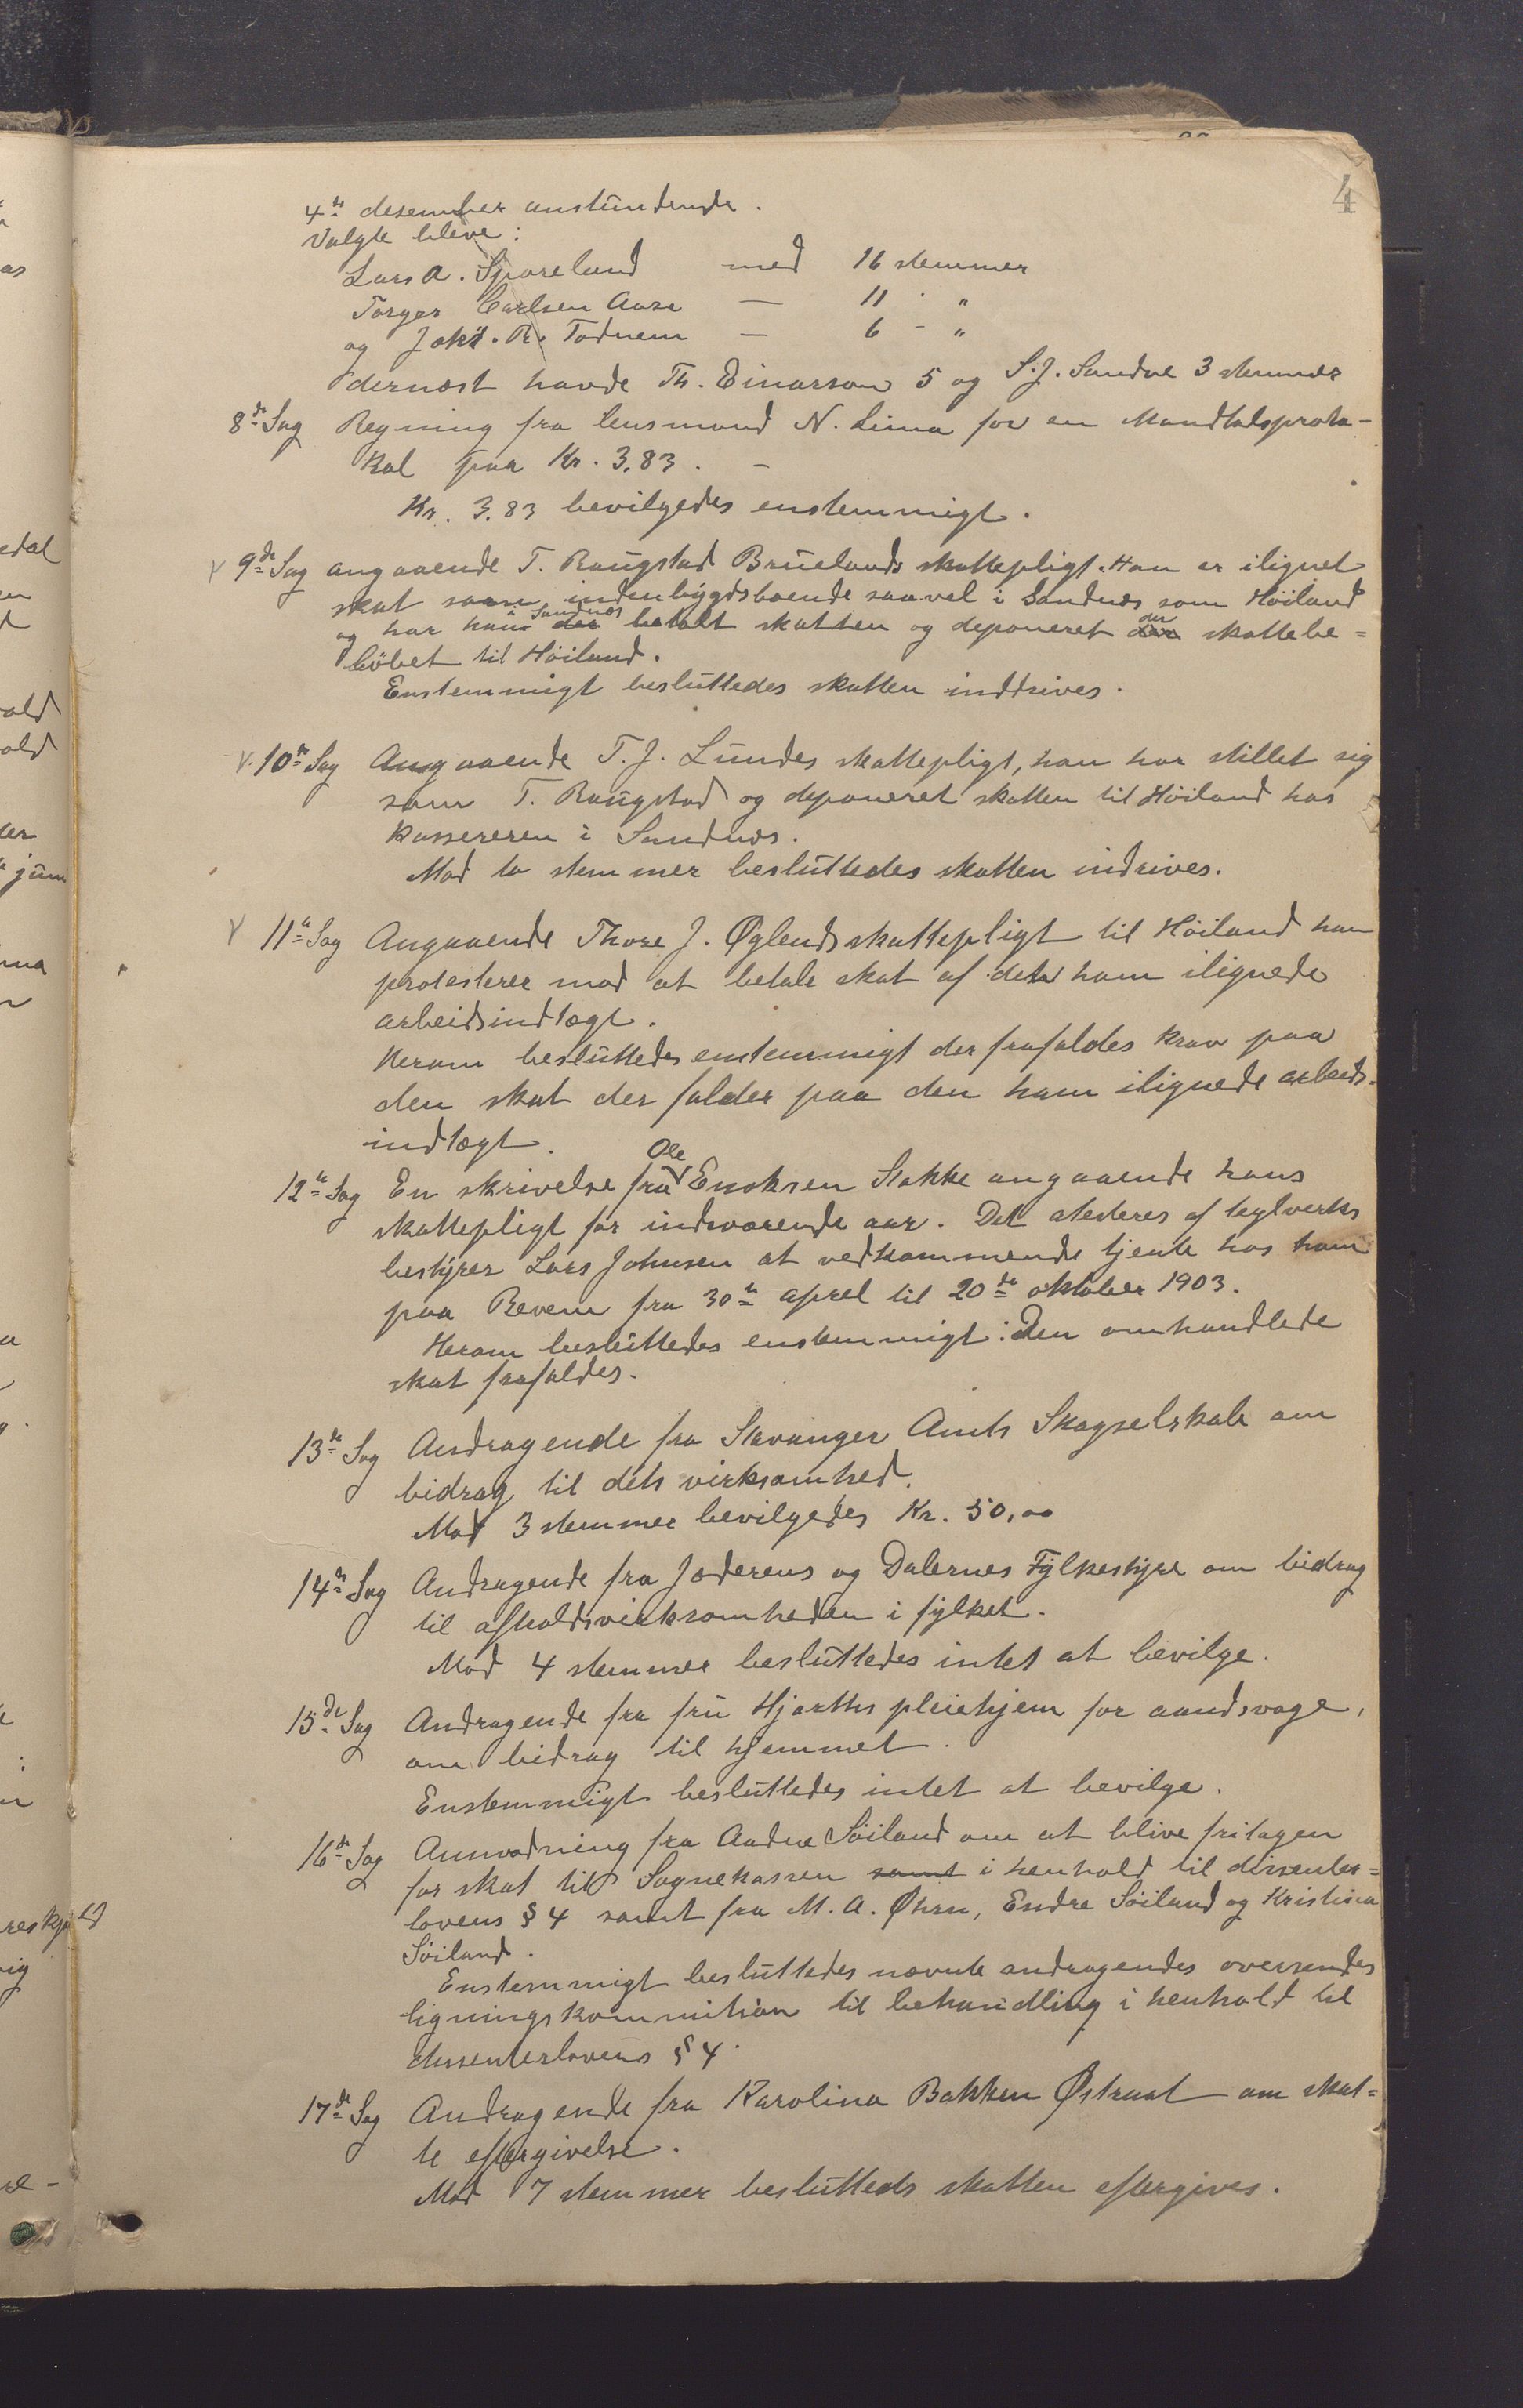 4
4de desember anstundende.
Valgte bleve:
Lars A. Spareland med 16 stemmer
Torger Carlsen Aase — 11 "
og Jakt. R. Todnem — 6 - "
dernæst havde Th. Einarson 5 og S. J. Sandve 3 stemmer
8de Sag Regning fra lensmand N. Lima for en Mandtalsproto-
kol paa Kr. 3.83. -
Kr. 3.83 bevilgedes enstemmigt.
9de Sag angaaende T. Raugstad Bruelands skattepligt. Han er ilignet
skat som indenbygdsboende saavel i Sandnes som Höiland
og har han i Sandnes der betalt skatten og deponeret der skattebe=
löbet til Höiland.
Enstemmigt besluttedes skatten inddrives.
10de Sag Angaaende T. J. Lundes skattepligt, han har stillet sig
som T. Raugstad og deponeret skatten til Höiland hos
kassereren i Sandnes.
Mod to stemmer besluttedes skatten indrives.
11te Sag Angaaende Thore J. Øglends skattepligt til Höiland han
protesterer mod at betale skat af den ham ilignede
arbeidsindtægt.
Herom besluttedes enstemmigt der frafaldes krav paa
den skat der falder paa den ham ilignede arbeids-
indtægt.
12te Sag En skrivelse fra Ole Enoksen Stokke angaaende hans
skattepligt for indeværende aar. Det atesteres af teglverks
bestyrer Lars Johnsen at vedkommende tjente hos ham
paa Revem fra 30te aprel til 20de oktober 1903.
Herom besluttedes enstemmigt: Den omhandlede
skat frafaldes.
13de Sag Andragende fra Stavanger Amts Skogselskab om
bidrag til dets virksomhed.
Mod 3 stemmer bevilgedes Kr. 50,00
14de Sag Andragende fra Jæderens og Dalernes Fylkestyre om bidrag
til afholdsvirksomheden i fylket.
Mod 4 stemmer besluttedes intet at bevilge.
15de Sag Andragende fra fru Hjorths pleiehjem for aandsvage,
om bidrag til hjemmet.
Enstemmigt besluttedes intet at bevilge.
16de Sag Anmodning fra Aadne Söiland om at blive fritagen
for skat til Sognekassen samt i henhold til dissenter=
lovens § 4 samt fra M. A. Øhrn, Endre Söiland og Kristina
Söiland.
Enstemmigt besluttedes nævnte andragendes oversendes
ligningskommition til behandling i henhold til
dissenterlovens § 4.
17de Sag Andragende fra Karolina Bakken Østraat om skat=
te eftergivelse.
Mod 7 stemmer besluttedes skatten eftergives.